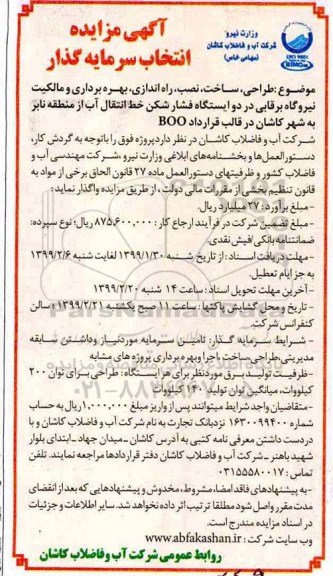 وزارت نیرو
شرکت آب و فاضلاب کاشان
(سهامی خاص)
آگهی مزایده
انتخاب سرمایه گذار
موضوع : طراحی، ساخت، نصب، راه اندازی، بهره برداری و مالکیت
نیروگاه برقابی در دو ایستگاه فشار شکن خط انتقال آب از منطقه نابر
به شهر کاشان در قالب قرارداد BOO
شرکت آب و فاضلاب کاشان در نظر دارد پروژه فوق را با توجه به گردش کار،
دستورالعمل‌ها و بخشنامه‌های ابلاغی وزارت نیرو، شرکت مهندسی آب و
فاضلاب کشور و ظرفیتهای دستورالعمل ماده ۲۷ قانون الحاق برخی از مواد به
قانون تنظیم بخشی از مقررات مالی دولت ، از طریق مزایده واگذار نماید:
- مبلغ برآورد : ۲۷ میلیارد ریال.
- مبلغ تضمین شرکت در فرآیند ارجاع کار : ۸۷۵,۶۰۰,۰۰۰ ریال؛ نوع سپرده:
ضمانتنامه بانکی/فیش نقدی.
- مهلت دریافت اسناد : از تاریخ شنبه ۱۳۹۹/۱/۳۰ لغایت شنبه ۱۳۹۹/۲/۶
به جز ایام تعطیل.
- آخرین مهلت تحویل اسناد : ساعت ۱۴ شنبه ۱۳۹۹/۲/۲۰
- تاریخ و محل گشایش پاکتها : ساعت ۱۱ صبح یکشنبه ۱۳۹۹/۲/۲۱ - سالن
کنفرانس شرکت.
- شرایط سرمایه گذار: تامین سرمایه موردنیاز و داشتن سابقه
مدیریتی، طراحی، ساخت، اجرا و بهره برداری پروژه های مشابه
- ظرفیت تولید برق مورد نظر برای هر ایستگاه : طراحی برای توان ۲۰۰
کیلووات، میانگین توان تولید ۱۴۰ کیلووات
- متقاضیان واجد شرایط میتوانند پس از واریز مبلغ ۱,۰۰۰,۰۰۰ ریال به حساب
شماره ۱۶۳۰۰۹۹۴۰۰ نزد بانک تجارت به نام شرکت آب و فاضلاب کاشان و با
در دست داشتن معرفی نامه کتبی به آدرس کاشان - میدان جهاد - ابتدای بلوار
شهید باهنر - شرکت آب و فاضلاب کاشان دفتر قراردادها مراجعه نمایند. تلفن
تماس : ۰۳۱۵۵۵۸۰۰۱۷
- به پیشنهادهای فاقد امضا، مشروط، مخدوش و پیشنهادهایی که بعد از انقضای
مدت مقرر واصل شود مطلقا ترتیب اثر داده نخواهد شد. سایر اطلاعات و جزئیات
در اسناد مزایده مندرج است.
وب سایت شرکت : www.abfakashan.ir
روابط عمومی شرکت آب و فاضلاب کاشان